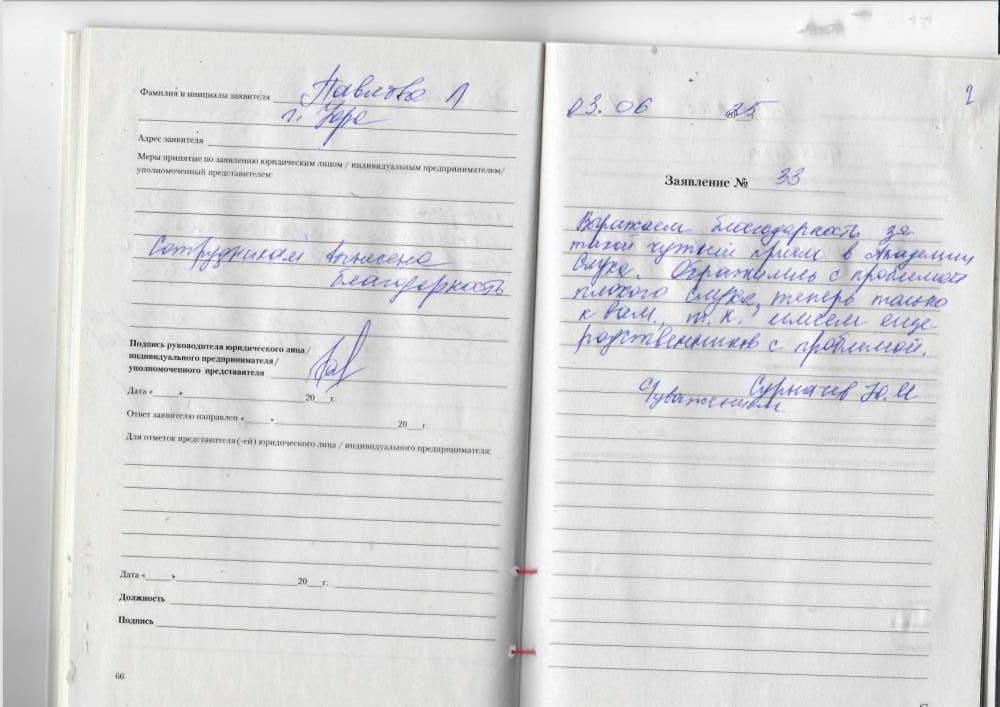 Фамилия и инициалы заявителя Павлова Л
г. Уфа
Адрес заявителя
Меры принятые по заявлению юридическим лицом / индивидуальным предпринимателем/
уполномоченный представителем:
Сотрудникам вынесена
благодарность
Подпись руководителя юридического лица /
индивидуального предпринимателя /
уполномоченного представителя
Дата «____» 20___г.
Ответ заявителю направлен «____» 20___г.
Для отметок представителя (-ей) юридического лица / индивидуального предпринимателя:
Дата «____» 20___г.
Должность
Подпись
66
03. 06 25
Заявление № 33
Выражаем благодарность за
такой чуткий прием в Академии
Слуха. Обратились с проблемой
плохого слуха, теперь только
к вам, т.к. имеем еще
родственников с проблемой.
С уважением Ю.И